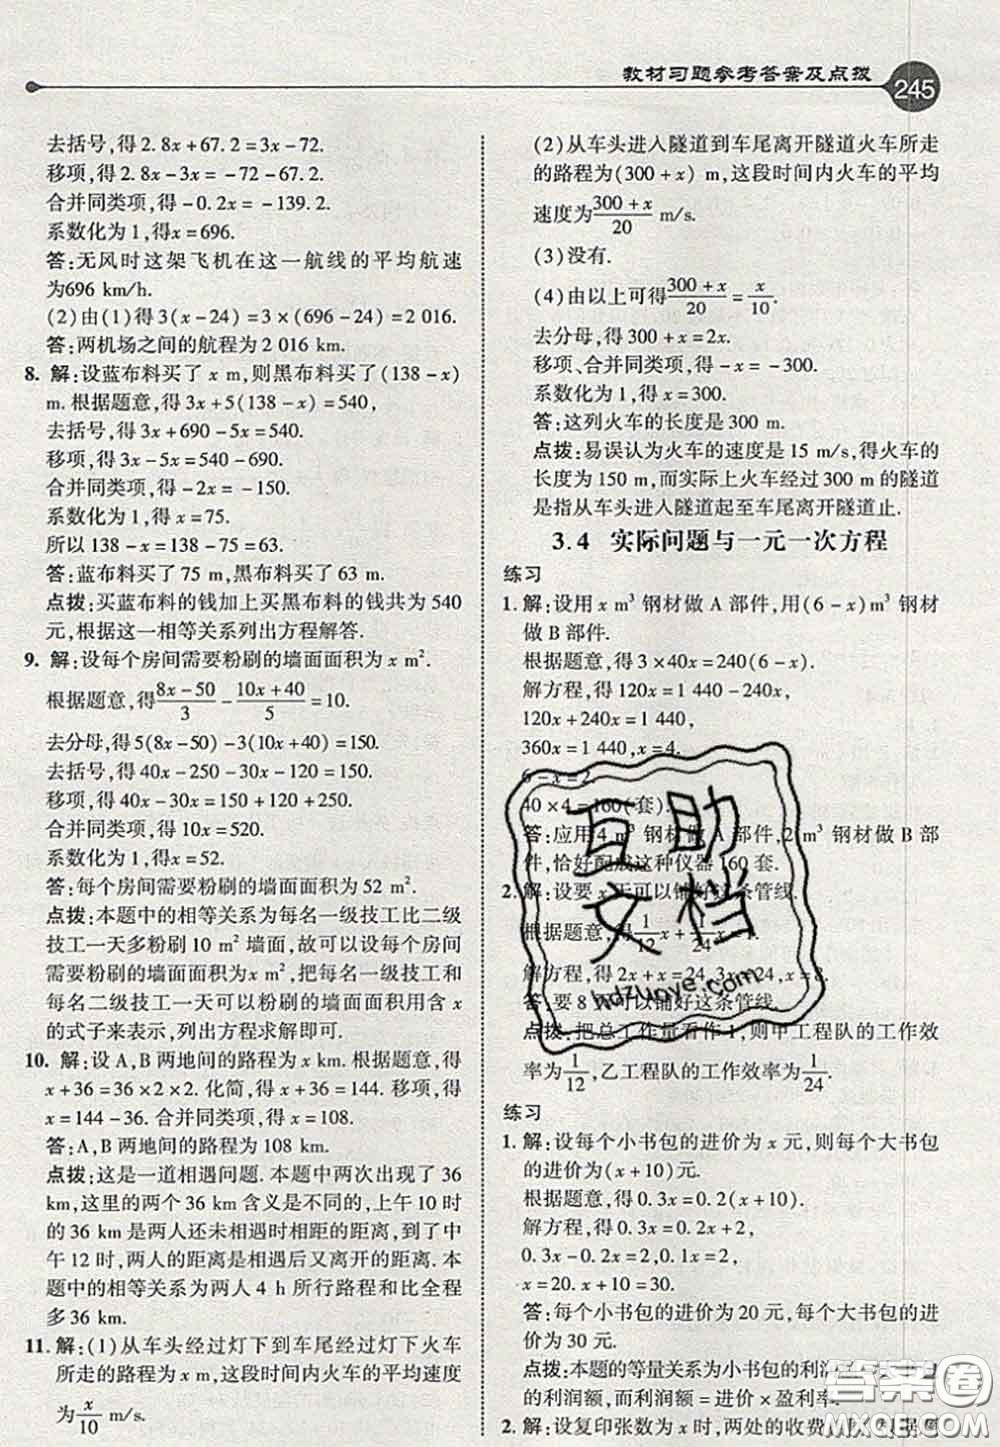 教材习题参考答案及点拨
245
去括号,得2.8x+67.2=3x-72.
移项,得2.8x-3x=-72-67.2.
合并同类项,得-0.2x=-139.2.
系数化为1,得x=696.
答:无风时这架飞机在这一航线的平均航速
为696 km/h.
(2)由(1)得3(x-24)=3×(696-24)=2 016.
答:两机场之间的航程为2 016 km.
8. 解:设蓝布料买了x m,则黑布料买了(138-x)
m.根据题意,得3x+5(138-x)=540,
去括号,得3x+690-5x=540.
移项,得3x-5x=540-690.
合并同类项,得-2x=-150.
系数化为1,得x=75.
所以138-x=138-75=63.
答:蓝布料买了75 m,黑布料买了63 m.
点拨:买蓝布料的钱加上买黑布料的钱共为540
元,根据这一相等关系列出方程解答.
9. 解:设每个房间需要粉刷的墙面面积为x m².
根据题意,得(8x-50)/3-(10x+40)/5=10.
去分母,得5(8x-50)-3(10x+40)=150.
去括号,得40x-250-30x-120=150.
移项,得40x-30x=150+120+250.
合并同类项,得10x=520.
系数化为1,得x=52.
答:每个房间需要粉刷的墙面面积为52 m².
点拨:本题中的相等关系为每名一级技工比二级
技工一天多粉刷10 m²墙面,故可以设每个房间
需要粉刷的墙面面积,把每名一级技工和
每名二级技工一天可以粉刷的墙面面积用含x
的式子来表示,列出方程求解即可.
10. 解:设A,B两地间的路程为x km.根据题意,得
x+36=36×2×2.化简,得x+36=144.移项,得
x=144-36.合并同类项,得x=108.
答:A,B两地间的路程为108 km.
点拨:这是一道相遇问题.本题中两次出现了36
km,这里的两个36 km含义是不同的,上午10时
的36 km是两人还未相遇时相距的距离,到了中
午12时,两人的距离是相遇后又离开的距离.本
题中的相等关系为两人4 h所行路程和比全程
多36 km.
11. 解:(1)从车头经过灯下到车尾经过灯下火车
所走的路程为x m,这段时间内火车的平均速度
为x/10 m/s.
(2)从车头进入隧道到车尾离开隧道火车所走
的路程为(300+x) m,这段时间内火车的平均
速度为(300+x)/20 m/s.
(3)没有.
(4)由以上可得(300+x)/20=x/10.
去分母,得300+x=2x.
移项、合并同类项,得-x=-300.
系数化为1,得x=300.
答:这列火车的长度是300 m.
点拨:易误认为火车的速度是15 m/s,得火车的
长度为150 m,而实际上火车经过300 m的隧道
是指从车头进入隧道起至车尾离开隧道止.
3.4 实际问题与一元一次方程
练习
1. 解:设用x m³钢材做A部件,用(6-x)m³钢材
做B部件.
根据题意,得3×40x=240(6-x).
解方程,得120x=1 440-240x,
120x+240x=1 440,
360x=1 440,x=4.
6-x=2.
40×4=160(套).
答:应用4 m³钢材做A部件,2 m³钢材做B部
件,恰好配成这种仪器160套.
2. 解:设要x天可以铺好这条管线.
根据题意,得1/12x+1/24x=1.
解方程,得2x+x=24,3x=24,x=8.
答:要8天可以铺好这条管线.
点拨:把总工作量看作1,则甲工程队的工作效
率为1/12,乙工程队的工作效率为1/24.
练习
1. 解:设每个小书包的进价为x元,则每个大书包
的进价为(x+10)元.
根据题意,得0.3x=0.2(x+10).
解方程,得0.3x=0.2x+2,
0.3x-0.2x=2,
x=20.x+10=30.
答:每个小书包的进价为20元,每个大书包的进
价为30元.
点拨:本题的等量关系为小书包的利润
的利润额,而利润额=进价×盈利率.
2. 解:设复印张数为x时,两处的收费
互助
文档
hdzuoye.com
答案圈
MXQE.COM